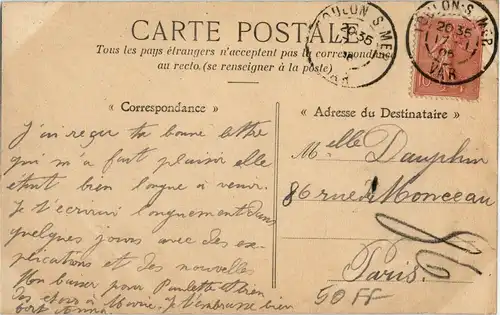 CARTE POSTALE
Tous les pays étrangers n'acceptent pas la correspondance
au recto. (se renseigner à la poste)
TOULON-S-MER
20 35
VAR
TOULON-S-MER
20 35
17
VAR
10
« Correspondance »
« Adresse du Destinataire »
J'ai reçu ta bonne lettre
qui m'a fait plaisir elle
était bien longue à venir.
Je t'écrirai longuement dans
quelques jours avec des ex-
plications et des nouvelles
Mon baiser pour Paulette et rien
des choses à Marie. Je t'embrasse bien
fort
Melle Dauphin
86 rue de Monceau
Paris.
50 FF